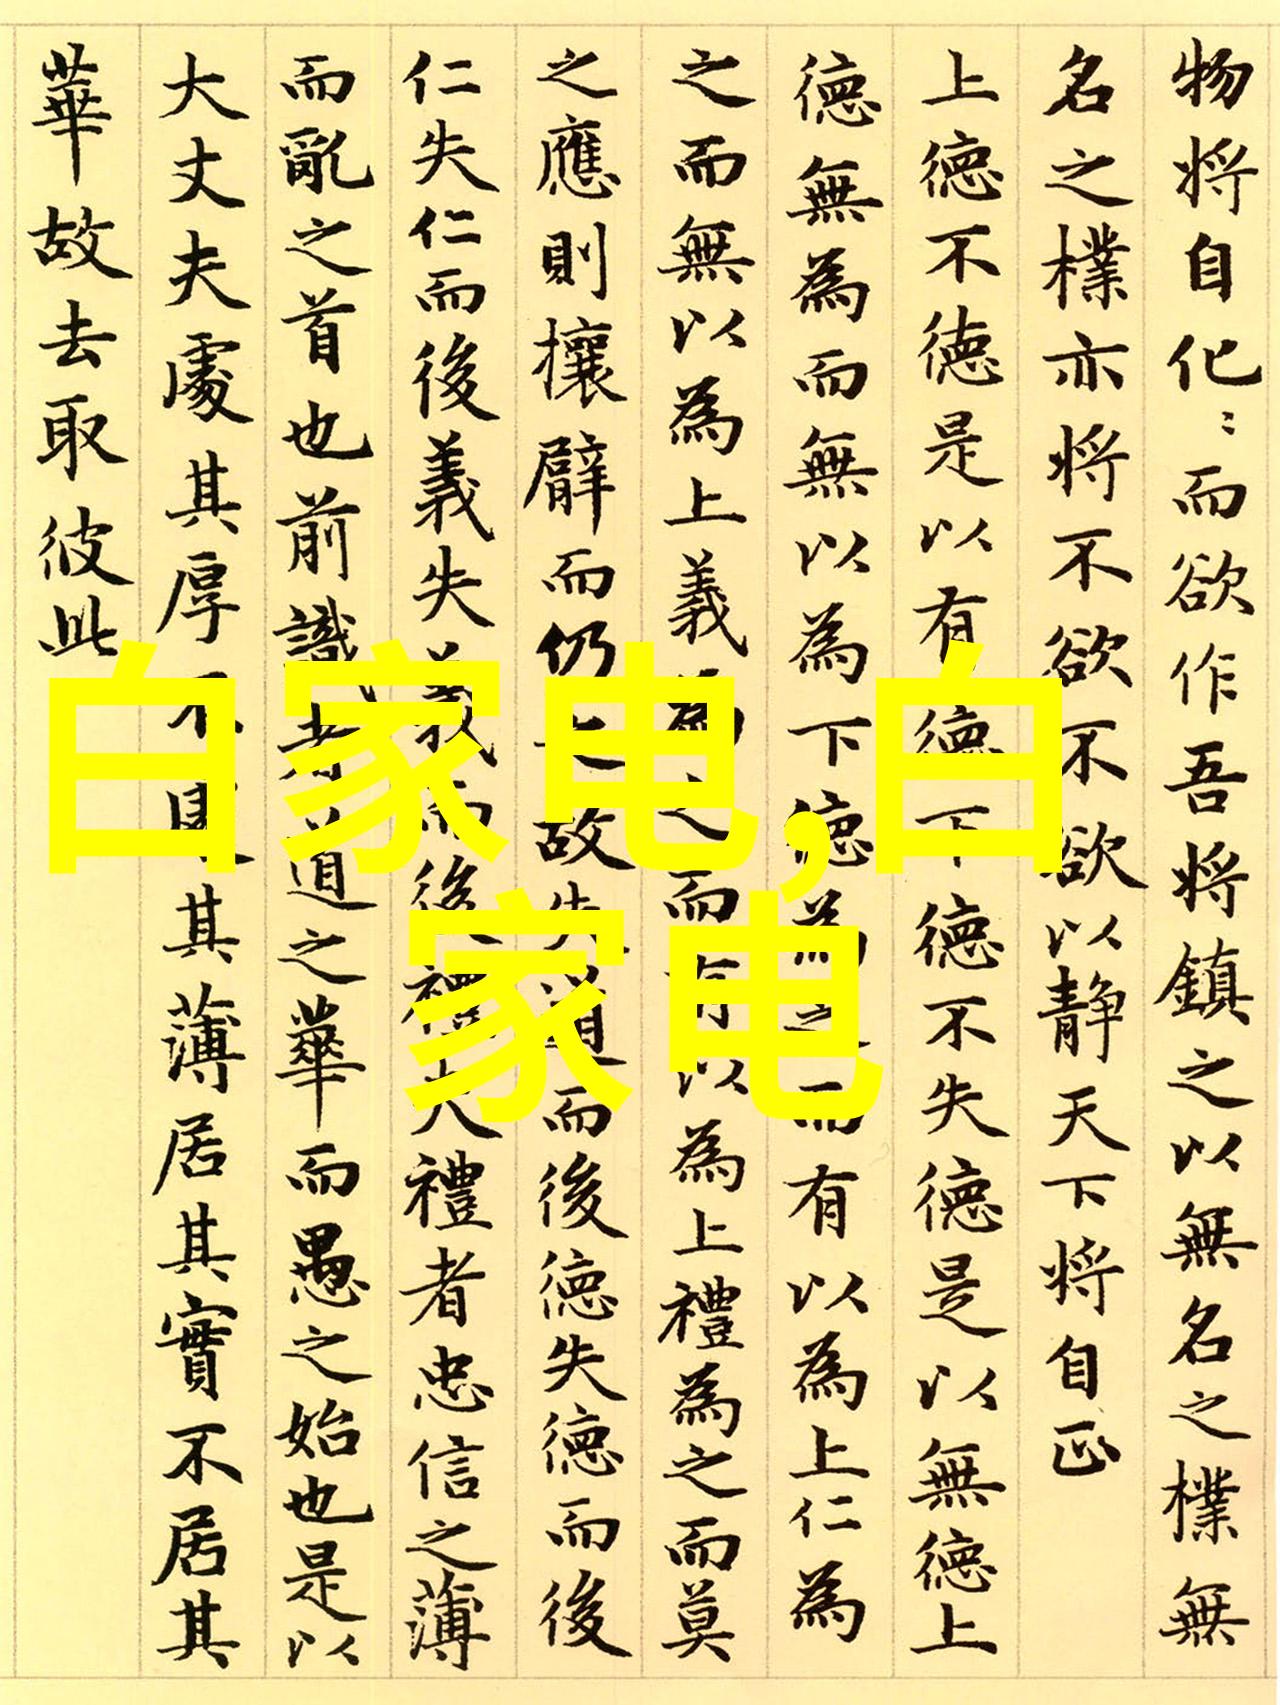 物将自化〻而欲作吾将鎮之以無名之樸無
名之樸亦将不欲不欲以静天下将自正
上徳不徳是以有徳下徳不失徳是以無徳上
徳無為而無以為下徳為之而有以為上仁為
之而無以為上義為之而有以為上禮為之而莫
之應則攘臂而仍之故失道而後徳失徳而後
仁失仁而後義失義而後禮夫禮者忠信之薄
而亂之首也前識者道之華而愚之始也是以
大丈夫處其厚不其薄居其實不居其
華故去取彼此
白家电,白
家电